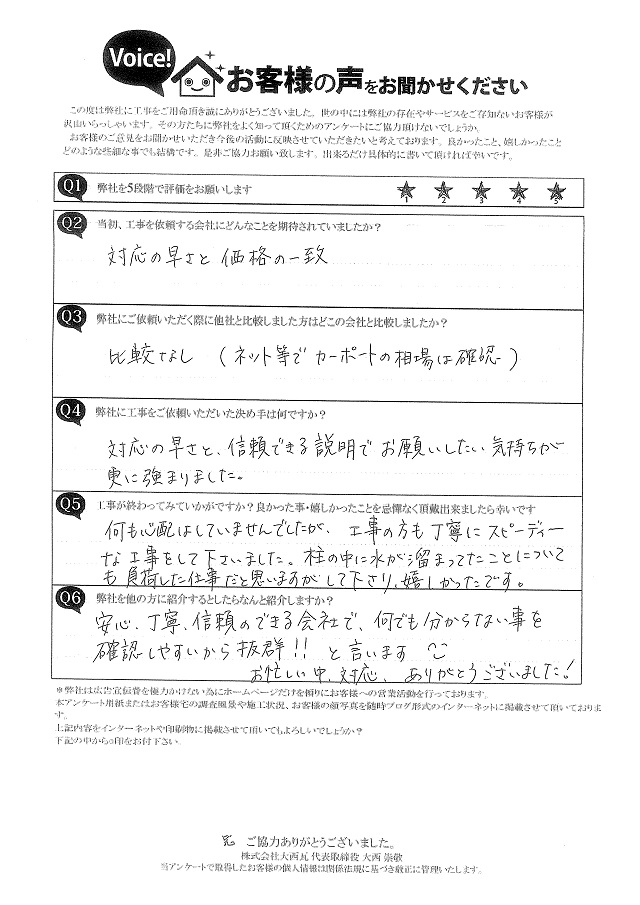 Voice!
お客様の声をお聞かせください
この度は弊社に工事をご用命頂き誠にありがとうございました。世の中には弊社の存在やサービスをご存知ないお客様が
沢山いらっしゃいます。その方たちに弊社をよく知って頂くためのアンケートにご協力頂けないでしょうか。
お客様のご意見をお聞かせいただき今後の活動に反映させていただきたいと考えております。良かったこと、嬉しかったこと
どのような些細な事でも結構です。是非ご協力お願い致します。出来るだけ具体的に書いて頂ければ幸いです。
Q1 弊社を5段階で評価をお願いします
1 2 3 4 5
Q2 当初、工事を依頼する会社にどんなことを期待されていましたか?
対応の早さと価格の一致
Q3 弊社にご依頼いただく際に他社と比較しました方はどこの会社と比較しましたか?
比較なし (ネット等でカーポートの相場は確認)
Q4 弊社に工事をご依頼いただいた決め手は何ですか?
対応の早さと、信頼できる説明でお願いしたい気持ちが
更に強まりました。
Q5 工事が終わってみていかがですか?良かった事・嬉しかったことを忌憚なく頂戴出来ましたら幸いです
何も心配はしていませんでしたが、工事の方も丁寧にスピーディー
な工事をして下さいました。柱の中に水が溜まってたことについて
も負荷した仕事だと思いますがして下さり、嬉しかったです。
Q6 弊社を他の方に紹介するとしたらなんと紹介しますか?
安心、丁寧、信頼のできる会社で、何でも分からない事を
確認しやすいから抜群!! と言います
お忙しい中、対応、ありがとうございました!
*弊社は広告宣伝費を極力かけない為にホームページだけを頼りにお客様への営業活動を行っております。
本アンケート用紙またはお客様宅の調査風景や施工状況、お客様の顔写真を随時ブログ形式のインターネットに掲載させて頂いておりま
す。
上記内容をインターネットや印刷物に掲載させて頂いてもよろしいでしょうか?
下記の中から○印をお付下さい。
ご協力ありがとうございました。
株式会社大西瓦 代表取締役 大西 崇敬
当アンケートで取得したお客様の個人情報は関係法規に基づき厳正に管理いたします。